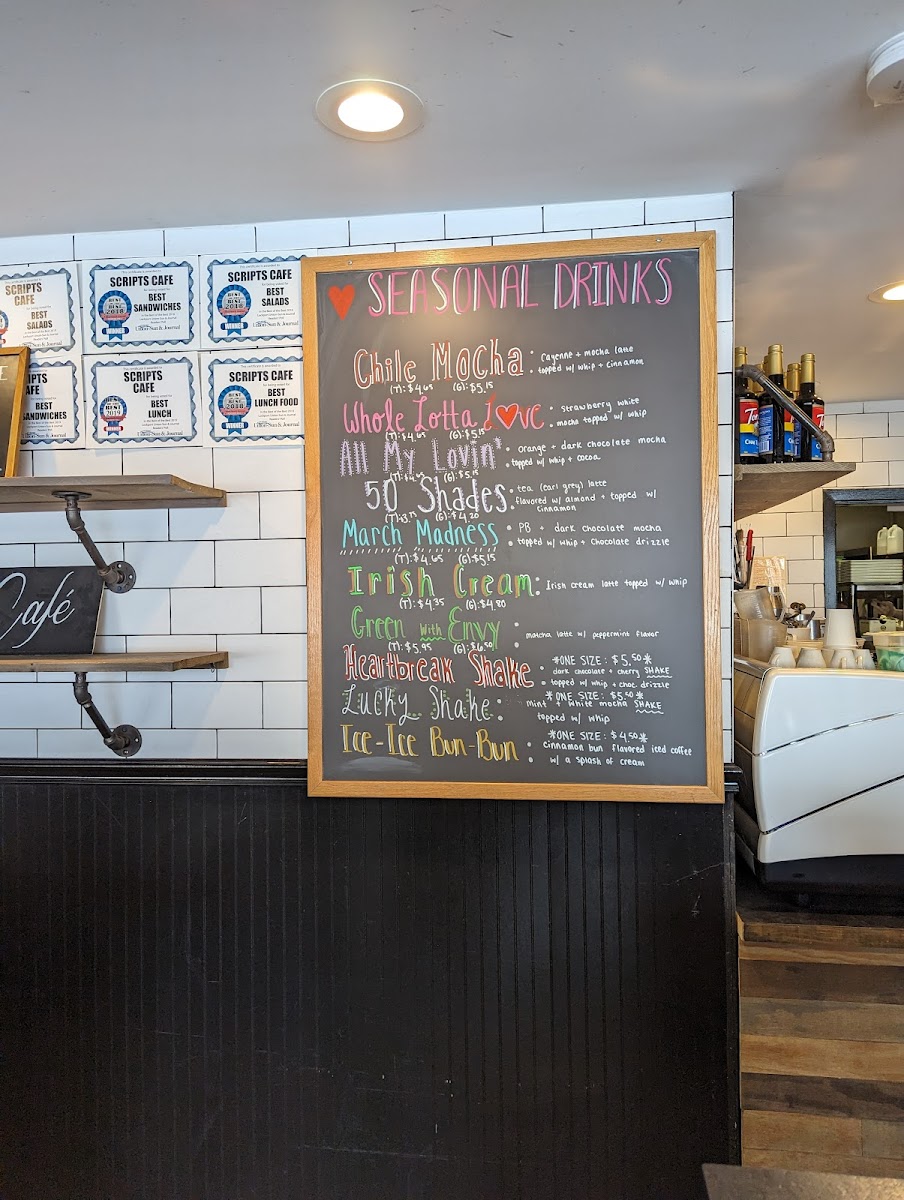 SCRIPTS
CAFE
BEST
SALADS
SCRIPTS CAFE
BEST
SANDWICHES
BEST
BEST
2018
WINNER
Union-Sun & Journal
SCRIPTS CAFE
BEST
SALADS
BEST
BEST
2018
WINNER
Union-Sun & Journal
CAFE
BEST
SANDWICHES
SCRIPTS
CAFE
BEST
LUNCH
BEST
2019
SCRIPTS
CAFE
BEST
LUNCH FOOD
BEST
2018
WINNER
Café
SEASONAL DRINKS
Chile Mocha : Cayenne + mocha latte
topped w/ whip + cinnamon
(T): $4.65 (G): $5.15
Whole Lotta Love • strawberry white
• mocha topped w/ whip
(T): $4.65 (G): $5.15
All My Lovin' • orange + dark chocolate mocha
• topped w/ whip + cocoa
(G): $5.15
50 Shades • tea (earl grey) latte
flavored w/ almond + topped w/
cinnamon
(G): $4.20
March Madness • PB + dark chocolate mocha
• topped w/ whip + chocolate drizzle
(T): $4.65 (G): $5.15
Irish Cream : Irish cream latte topped w/ whip
(T): $4.35 (G): $4.80
Green with Envy : matcha latte w/ peppermint flavor
(T): $5.95 (G): $6.50
Heartbreak Shake • *ONE SIZE: $5.50*
• dark chocolate + cherry SHAKE
• topped w/ whip + choc. drizzle
Lucky Shake: *ONE SIZE: $5.50*
Mint + white mocha SHAKE
topped w/ whip
Ice-Ice Bun-Bun *ONE SIZE: $4.50*
• cinnamon bun flavored iced coffee
• w/ a splash of cream